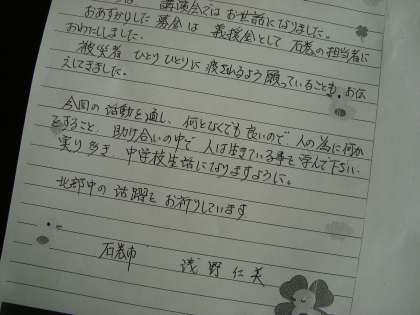 講演会ではお世話になりました。
おあずかりした募金は 義援金として 石巻の担当者に
おわたししました。
被災者 ひとりひとりに 渡されるよう 願っていることも、お伝
えしてきました。
今回の活動を通し、何となくでも良いので 人の為に何か
をすること、助け合いの中で 人は生きている事を学んで下さい。
実り多き、中学校生活になりますように。
北部中の 活躍を お祈りしています
石巻市 浅野仁美